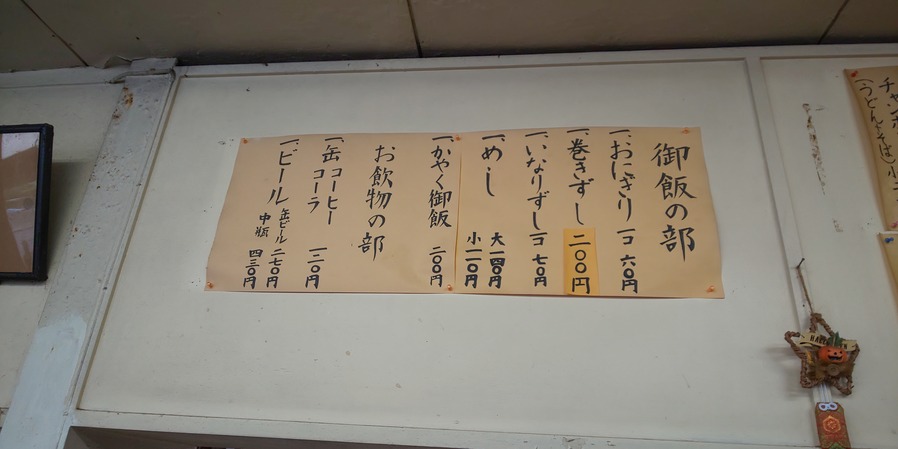 御飯の部
一、おにぎり 一コ 六〇円
一、巻きずし 二〇〇円
一、いなりずし 一コ 七〇円
一、めし 大 一四〇円
小 一一〇円
一、かやく御飯 二〇〇円
お飲物の部
一、缶コーヒー
コーラ 一二〇円
一、ビール 缶ビール 二七〇円
中瓶 四三〇円
(うどん、そば)小